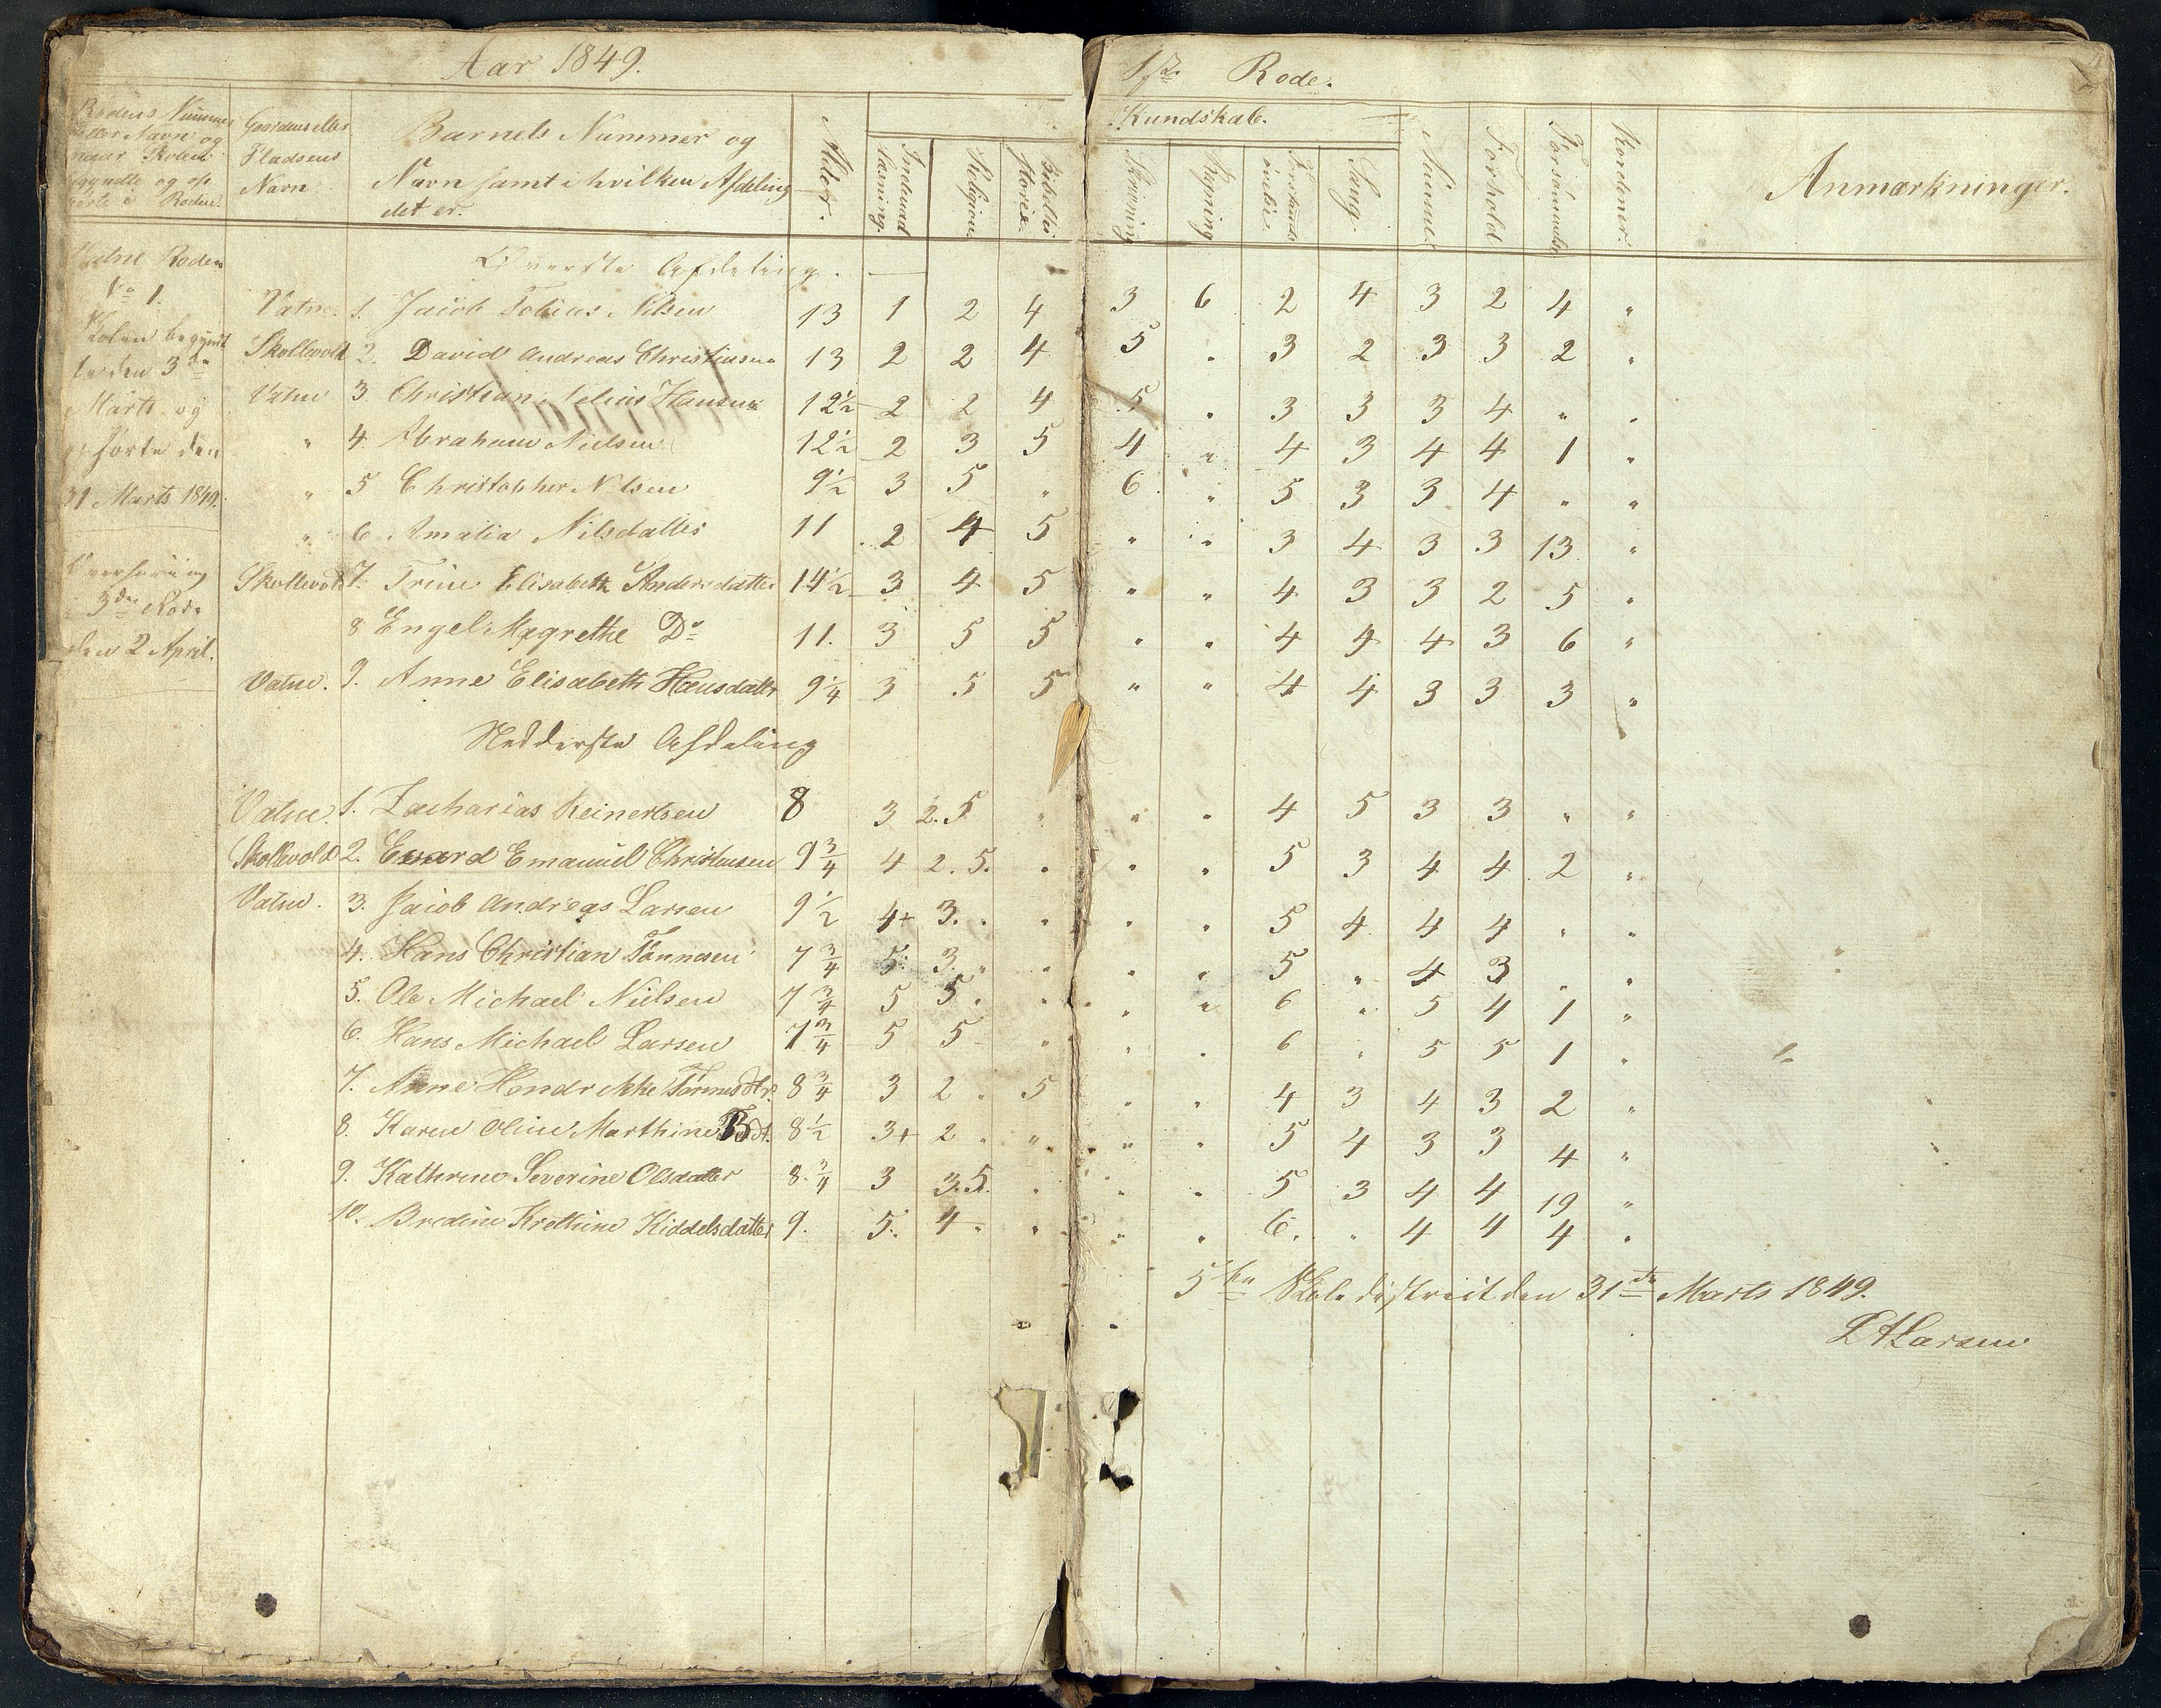 Aar 1849.
1ste Rode.
Rodens Nummer
eller Navn og
naar Skolen
begyndte og op
hørte i Roden.
Gaardens eller
Pladsens
Navn.
Barnets Nummer og
Navn samt i hvilken Afdeling
det er.
Alder.
Indenad
Læsning.
Religion.
Bibelhi
storie.
Kundskab.
Skrivning
Regning
Forstands
øvelse.
Sang.
Nemme
Forhold
Forsømmelse
Anmærkninger.
Vatne Roden
No 1.
Skolen begynd
te den 3die
Marts og
ophørte den
31 Marts 1849.
i 3die Rode
den 2 April.
Øverste Afdeling.
Vatne. 1. Jacob Tobias Nilsen 13 1 2 4 3 6 2 4 3 2 4 "
Skollevold 2. David Andreas Christensen 13 2 2 4 5 " 3 2 3 3 2 "
Vatne 3. Christian Nelius Hansen 12½ 2 2 4 5 " 3 3 3 4 " "
" 4. Abraham Nielsen 12½ 2 3 5 4 " 4 3 4 4 1 "
" 5 Christopher Nilsen 9½ 3 5 " 6 " 5 3 3 4 " "
" 6. Amalia Nilsdatter 11 2 4 5 " " 3 4 3 3 13 "
Skollevold 7. Trine Elisabeth Andersdatter 14½ 3 4 5 " " 4 3 3 2 5 "
8 Engel Magrethe Do 11. 3 5 5 " " 4 4 4 3 6 "
Vatne. 9. Anne Elisabeth Hansdatter 9¼ 3 5 5 " " 4 4 3 3 3 "
Nedderste Afdeling
Vatne. 1. Zacharias Reinertsen 8 3 2.5. " " " 4 5 3 3 " "
Skollevold 2. Edvard Emanuel Christensen 9¾ 4 2.5. " " " 5 3 4 4 2 "
Vatne. 3. Jacob Andreas Larsen 9½ 4+ 3. " " " " 5 4 4 4 " "
4. Hans Christian Tønnesen 7¾ 5. 3. " " " " 5 " 4 3 " "
5. Ole Michael Nielsen 7¾ 5 5. " " " 6 " 5 4 1 "
6. Hans Michael Larsen 7¾ 5 5 " " " 6 " 5 5 1 "
7. Anne Hendrikke Tønnesdtr. 8¾ 3 2 " 5 " " 4 3 4 3 2 "
8. Karen Oline Marthine 8½ 3+ 2 " " " " 5 4 3 3 4 "
9. Kathrine Severine Olsdatter 8.¾ 3 3.5. " " " 5 3 4 4 19 "
10. Bredine Krethine Kiddelsdatter 9. 5. 4 " " " " 6. " 4 4 4 "
5te Skoledistrict den 31te Marts 1849.
Larsen